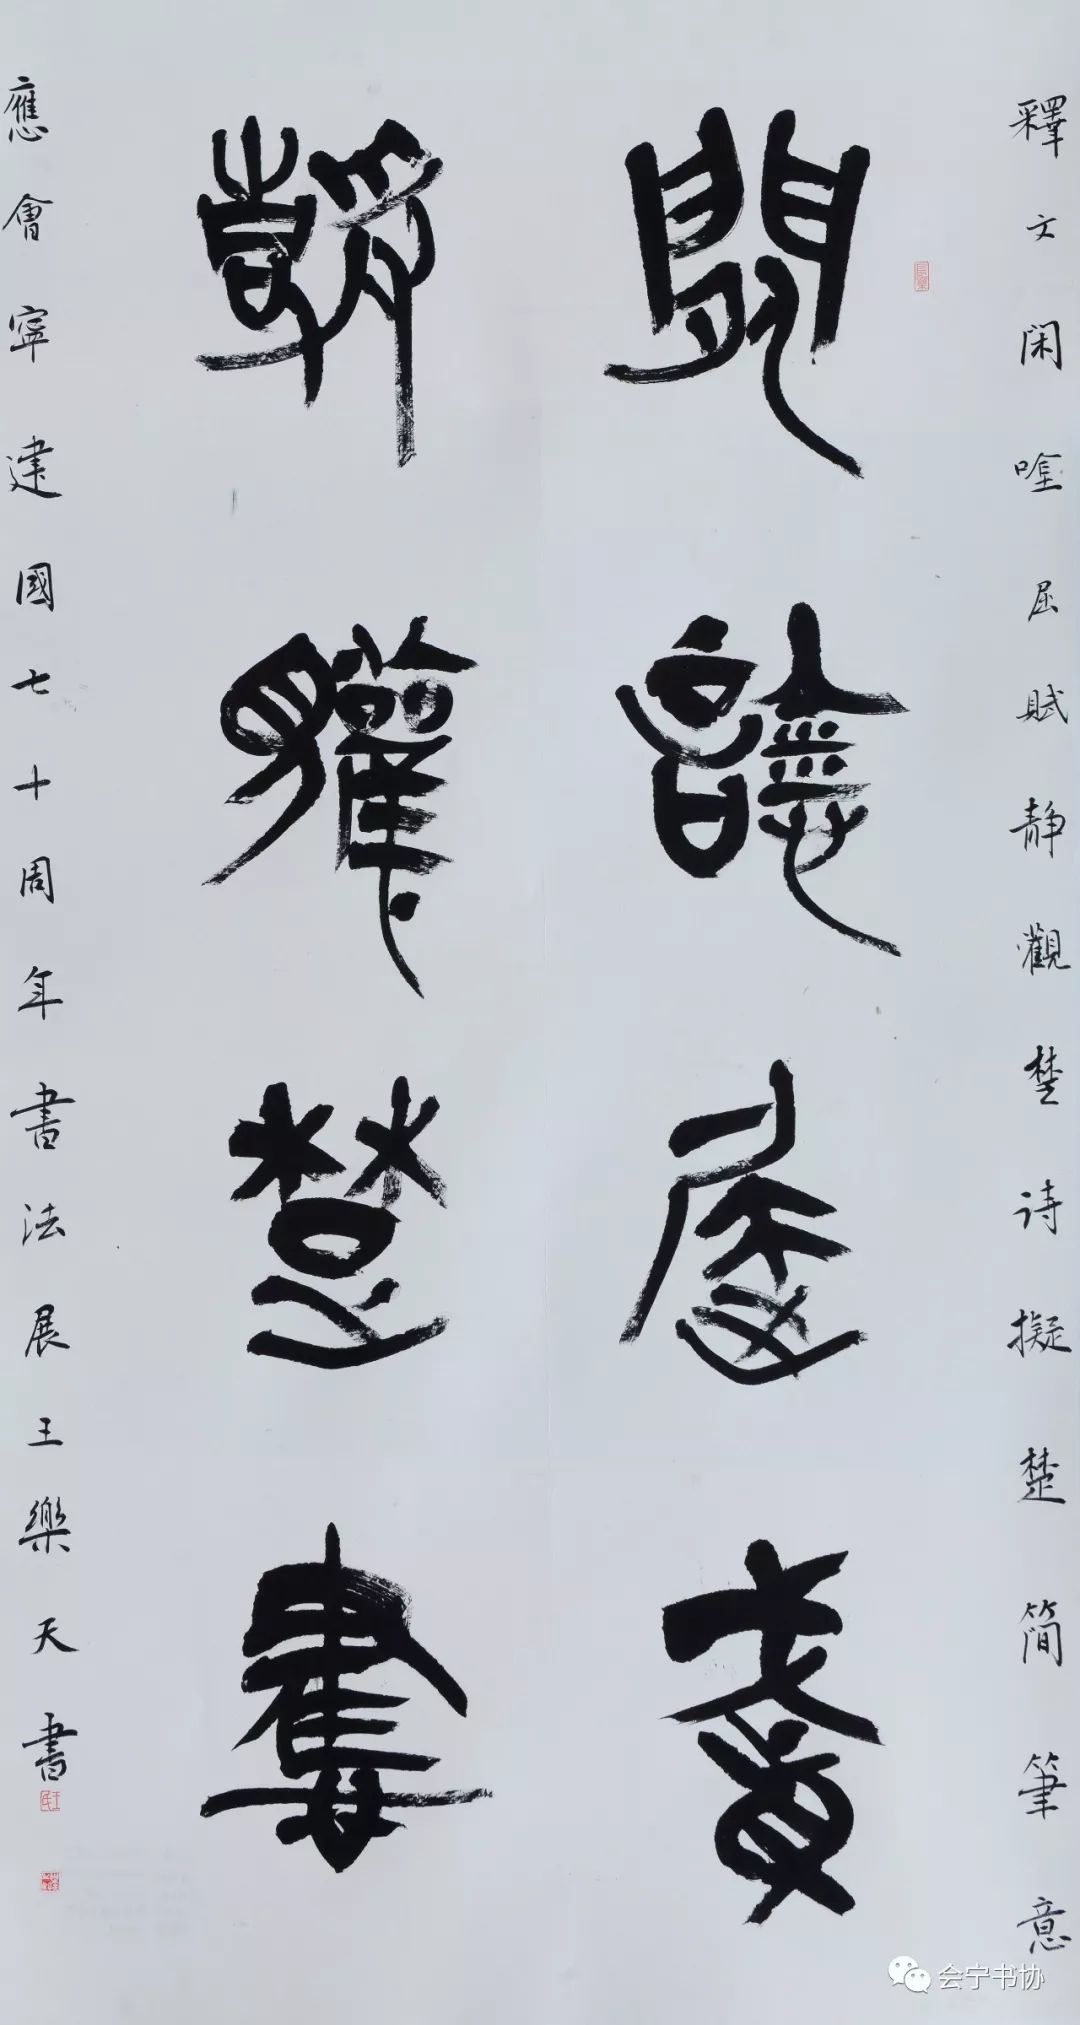 釋文閑唫屈賦静觀楚诗擬楚簡筆意
閑唫屈賦
静觀楚
應會寧建國七十周年書法展王樂天書
会宁书协